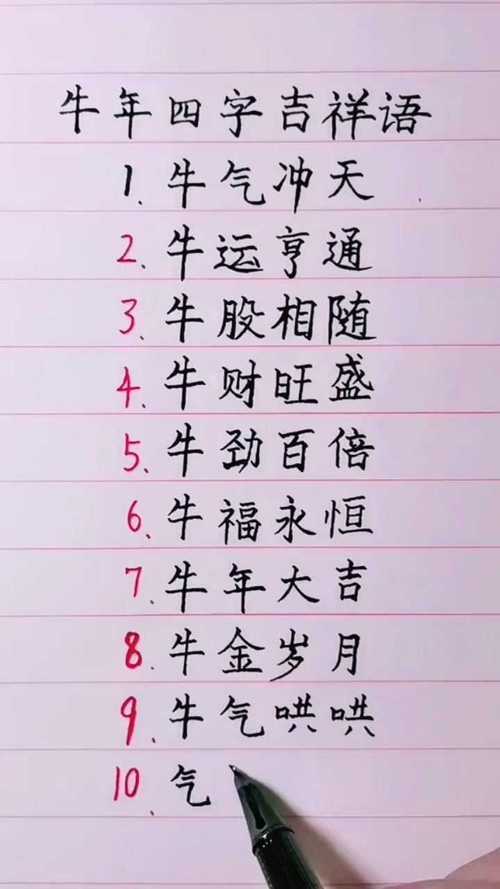 牛年四字吉祥语
1、牛气冲天
2、牛运亨通
3、牛股相随
4、牛财旺盛
5、牛劲百倍
6、牛福永恒
7、牛年大吉
8、牛金岁月
9、牛气哄哄
10、气